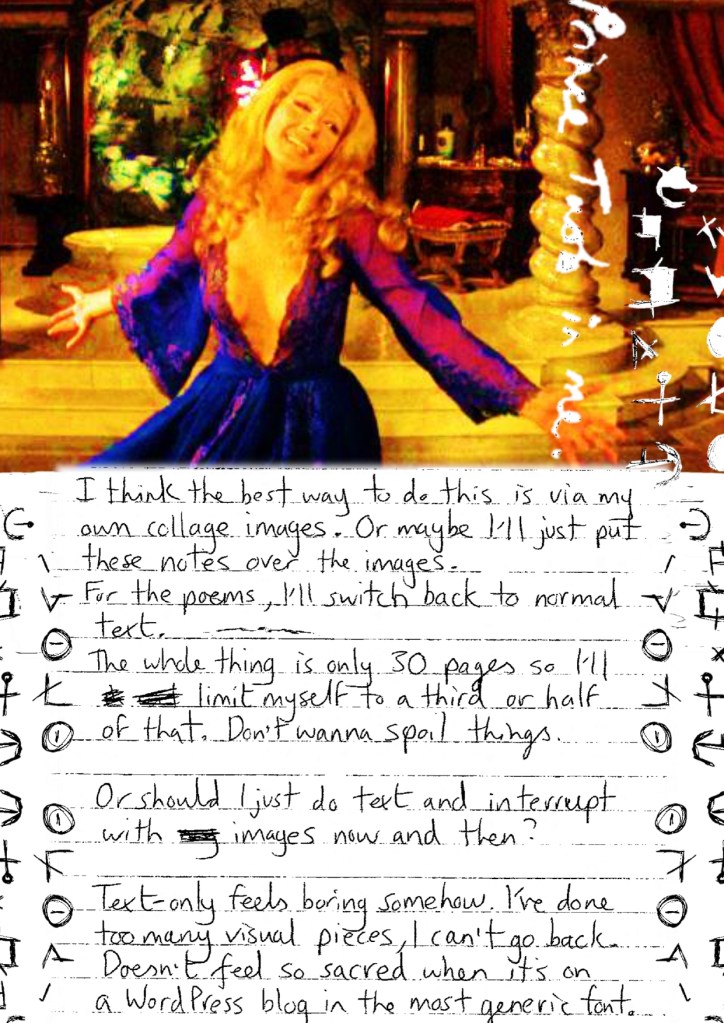 Painee Took in me.
I think the best way to do this is via my
own collage images. Or maybe I'll just put
these notes over the images.
For the poems, I'll switch back to normal
text.
The whole thing is only 30 pages so I'll
limit myself to a third or half
of that. Don't wanna spoil things.
Or should I just do text and interrupt
with images now and then?
Text-only feels boring somehow. I've done
too many visual pieces, I can't go back.
Doesn't feel so sacred when it's on
a WordPress blog in the most generic font.